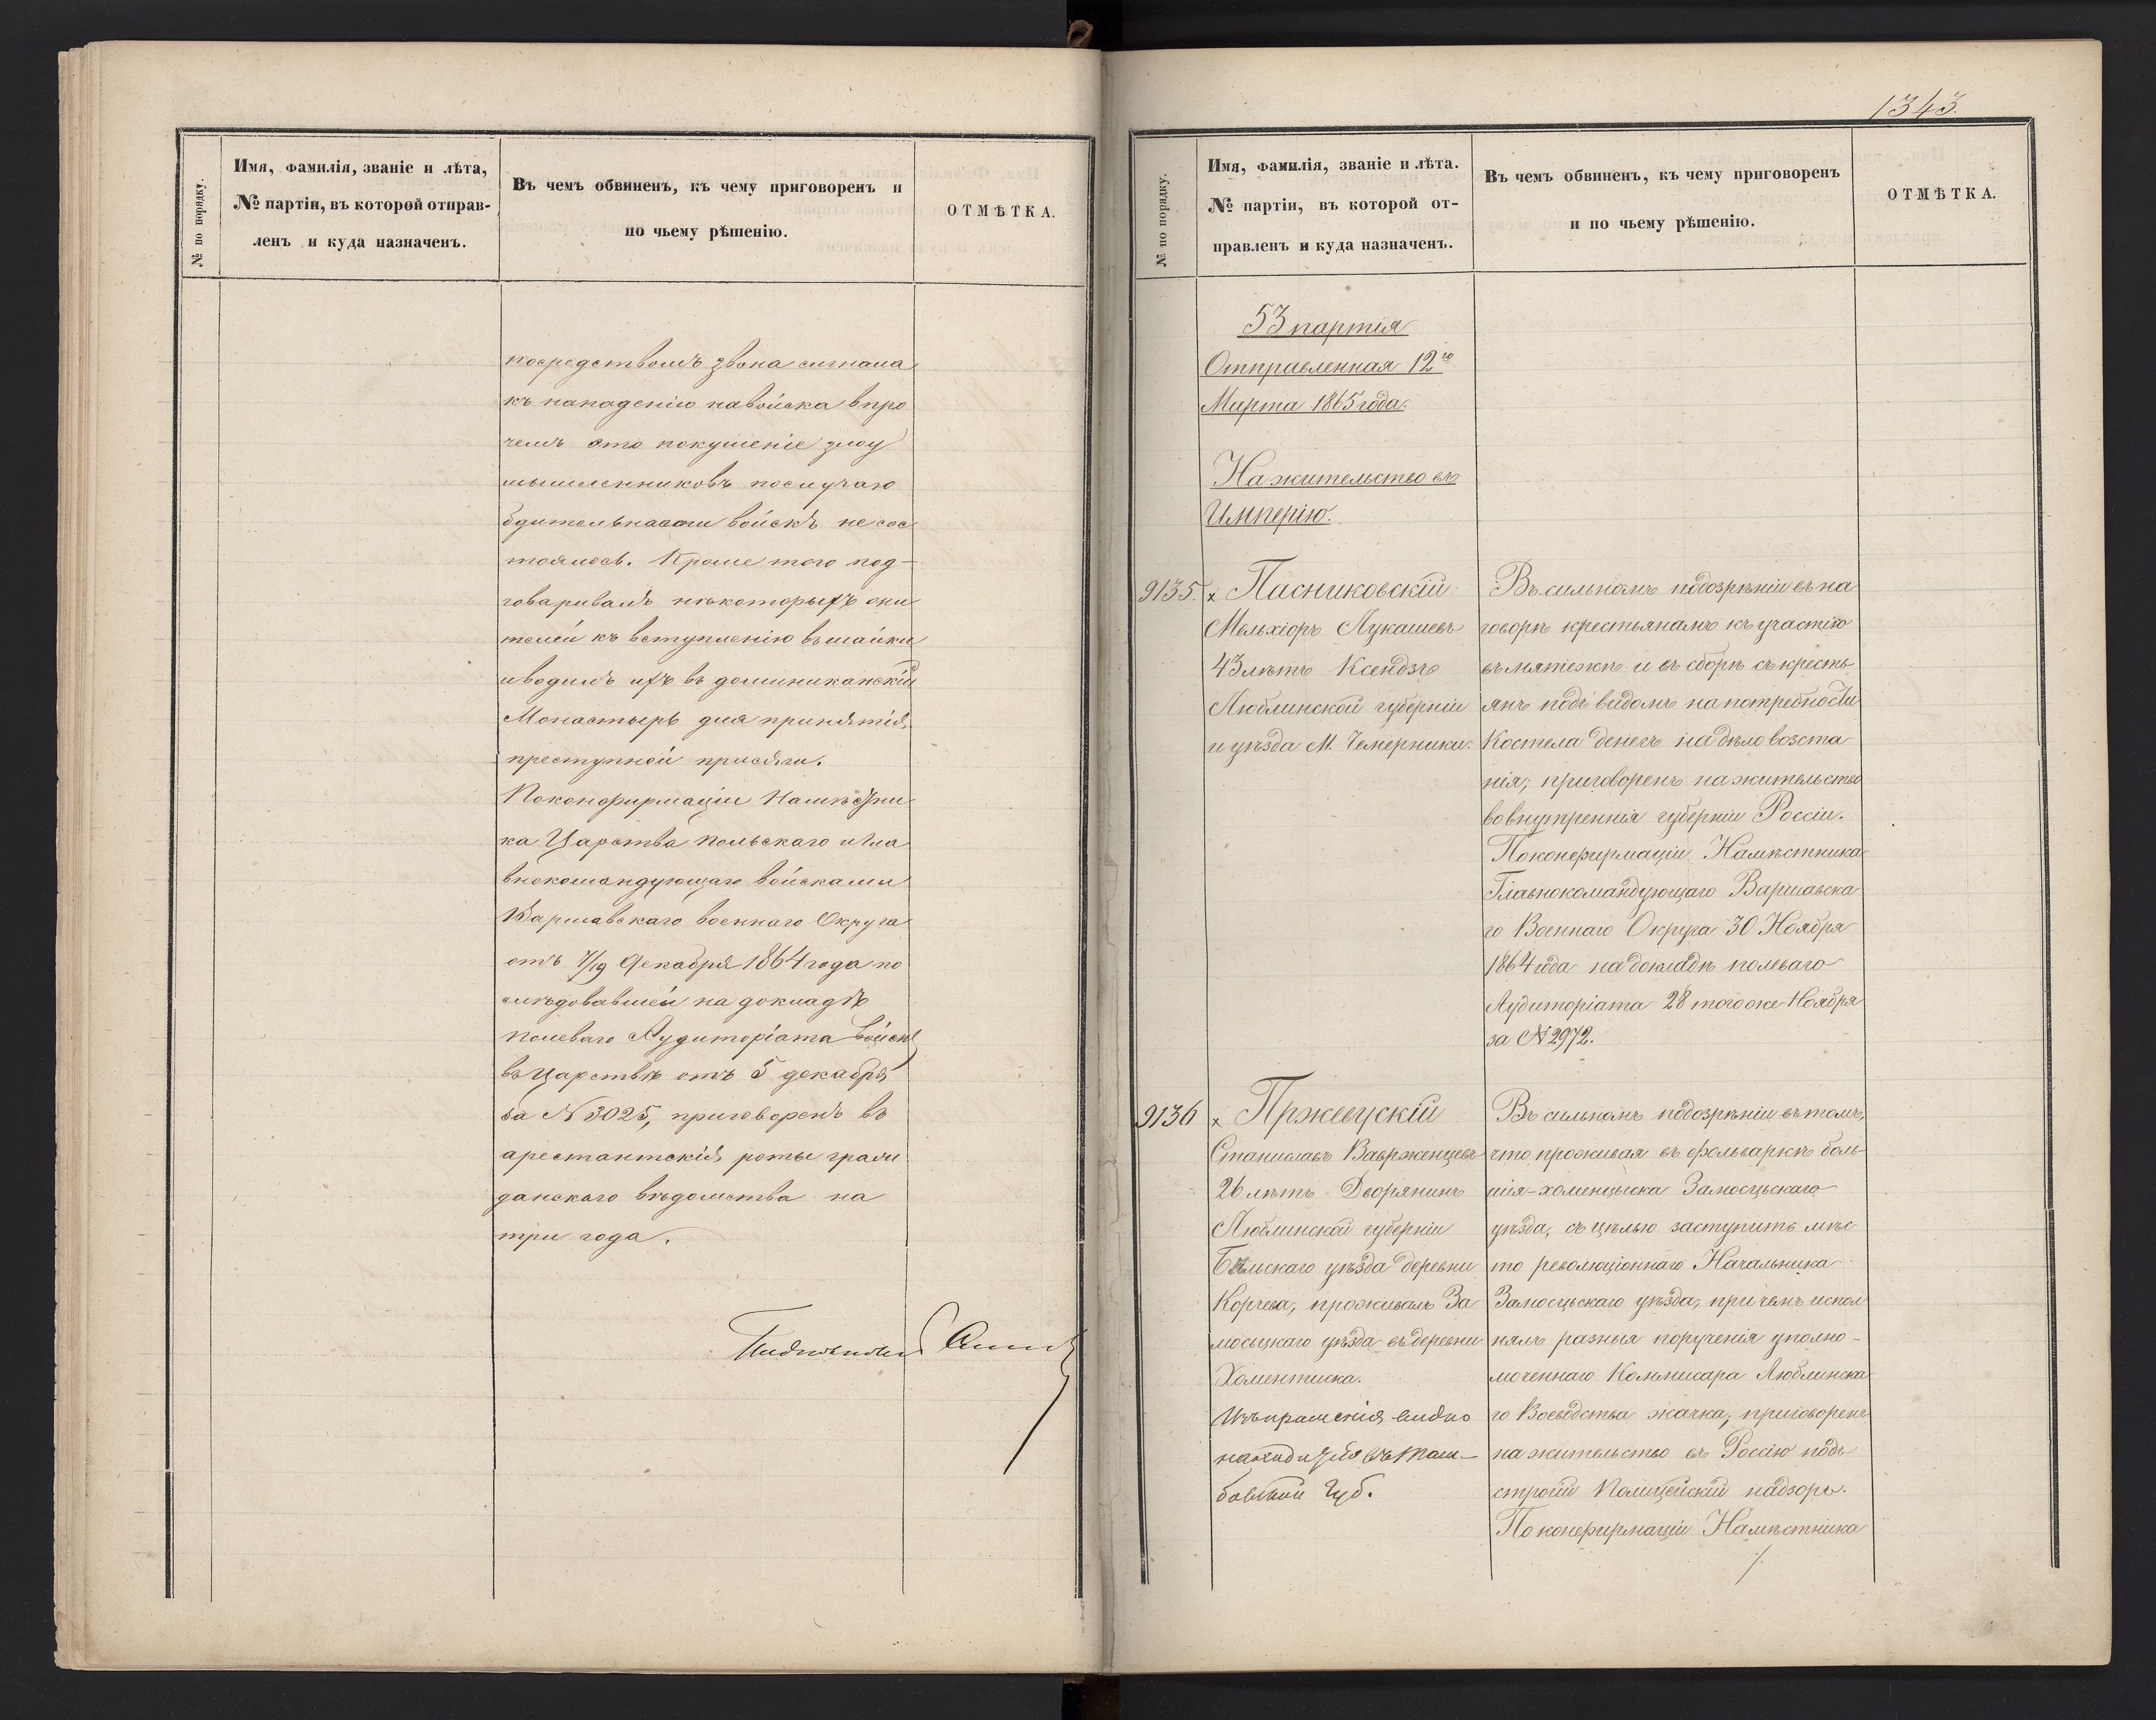 № по порядку.
Имя, фамилія, званіе и лѣта,
№ партіи, въ которой отправ-
ленъ и куда назначенъ.
Въ чемъ обвиненъ, къ чему приговоренъ и
по чьему рѣшенію.
ОТМѢТКА.
посредствомъ звона сигнала
къ нападенію навойска впро
чемъ это покушеніе злоу
мышленниковъ послучаю
бдительности войскъ не сос
тоялось. Кроме того под-
говаривалъ нѣкоторыхъ жи
телей къ вступленію въшайки
иводилъ ихъ въ доминиканскій
Монастырь для принятія
преступной присяги.
Поконфирмаціи Намѣстни
ка Царства Польскаго и Гла
внокомандующаго войсками
Варшавскаго военнаго Округа
отъ 7/19 Декабря 1864 года по
слѣдовавшей на докладѣ
Полеваго Аудиторіата войскъ
въ Царствѣ отъ 5 декабря
за N 3025, приговоренъ въ
арестантскія роты граж
данскаго вѣдомства на
три года.
1343.
№ по порядку.
Имя, фамилія, званіе и лѣта.
№ партіи, въ которой от-
правленъ и куда назначенъ.
Въ чемъ обвиненъ, къ чему приговоренъ
и по чьему рѣшенію.
ОТМѢТКА.
53 партія
Отправленная 12го
Марта 1865 года.
На жительство въ
Имперію.
9135. x Пасниковскій
Мельхіоръ Лукашевъ
43 лѣтъ Ксендзъ
Люблинской губерніи
и уѣзда М. Чемерники.
Въ сильномъ подозрѣніи въ на
говорѣ крестьянамъ къ участію
въ мятежѣ и въ сборѣ съ кресть
янъ подъ видомъ на потребности
Костела денегъ на дѣло возста
нія; приговоренъ на жительство
во внутреннія губерніи Россіи.
Поконфирмаціи Намѣстника
Главнокомандующаго Варшавска
го Военнаго Округа 30 Ноября
1864 года на докладѣ полеваго
Аудиторіата 28 того же Ноября
за N 2972.
9136 x Пржевускій
Станиславъ Вавржинцевъ
26 лѣтъ Дворянинъ
Люблинской губерніи
Бѣльскаго уѣзда деревни
Корчева, проживалъ За
мосцкаго уѣзда въ деревни
Хоментиска.
Изъ прошенія видно
находится въ Там-
бовской Губ.
Въ сильномъ подозрѣніи въ томъ,
что проживая въ фольваркѣ боль
шія-хоменцыска Замосцьскаго
уѣзда, съ цѣлью заступить мѣс
то революціоннаго Начальника
Замосцьскаго уѣзда, при чемъ испол
нялъ разныя порученія уполно-
моченнаго Коммисара Люблинска
го Воеводства жачка, приговоренъ
на жительство въ Россію подъ
строгій Полицейскій надзоръ.
По конфирмаціи Намѣстника